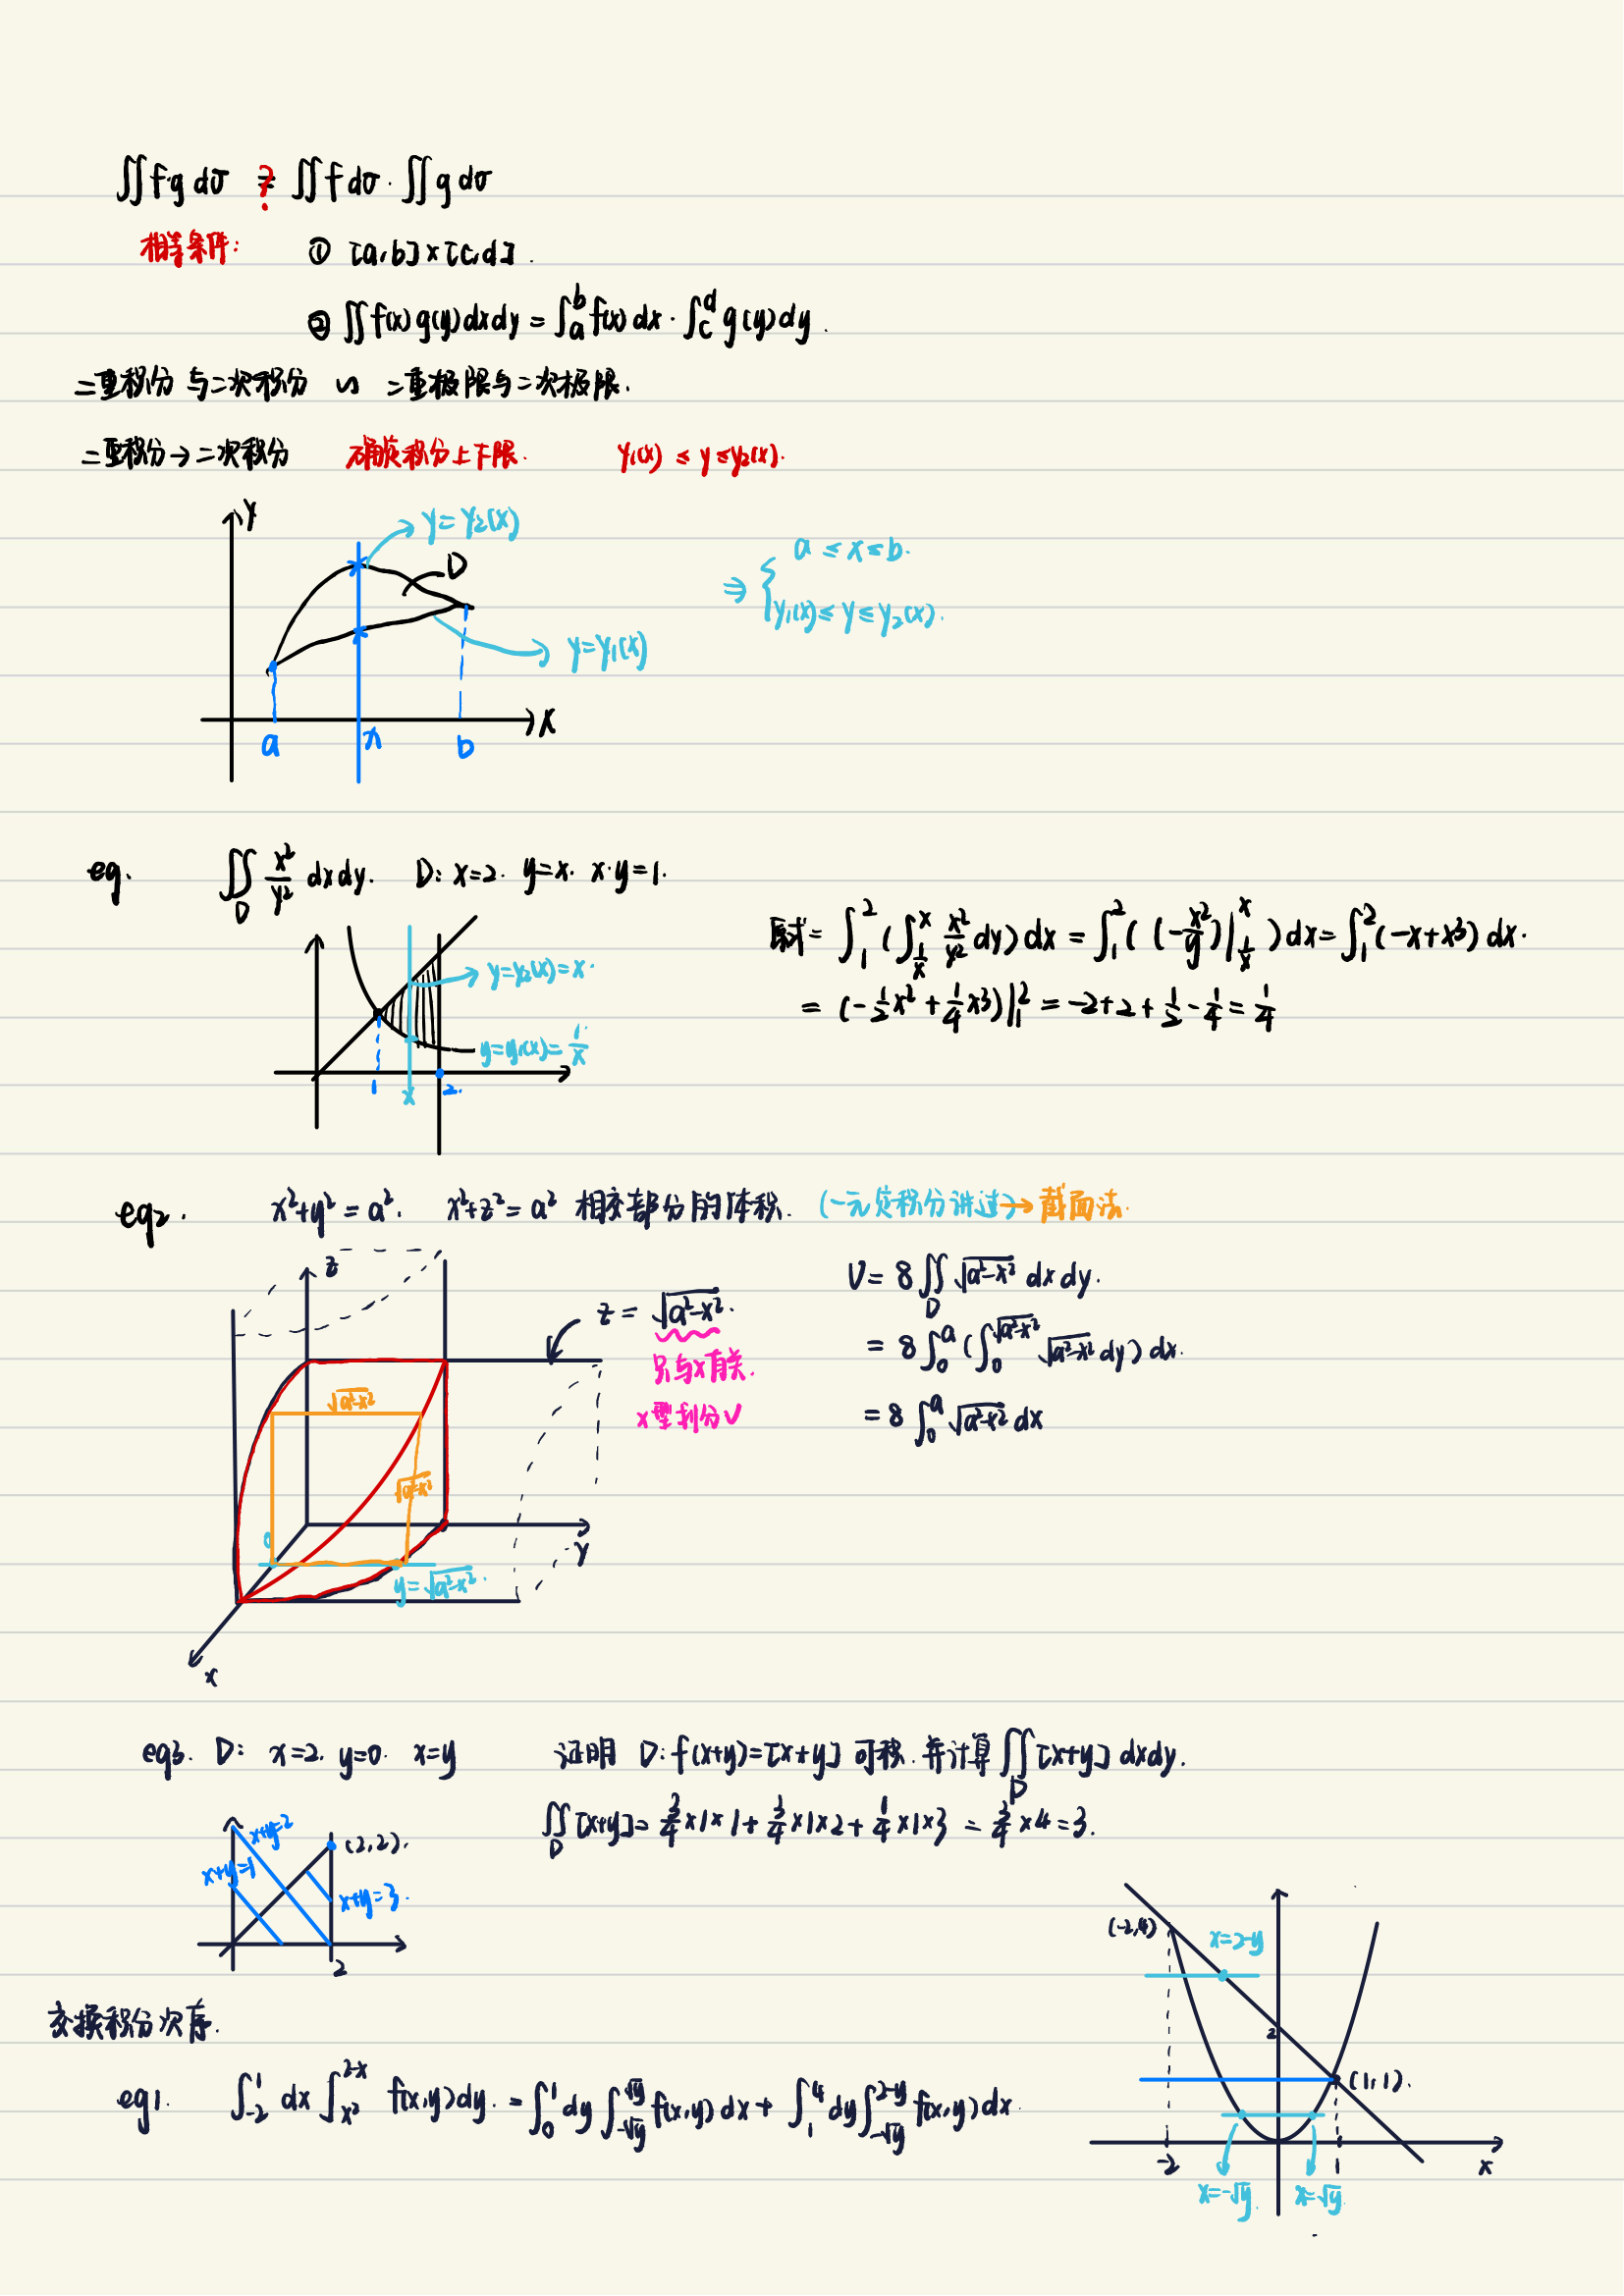 ∬f·g dσ ?= ∬f dσ · ∬g dσ
相等条件: ① [a,b]×[c,d].
② ∬f(x)g(y)dxdy = ∫_a^b f(x)dx · ∫_c^d g(y)dy.
二重积分与二次积分 ∽ 二重极限与二次极限.
二重积分→二次积分 确定积分上下限. y₁(x) ≤ y ≤ y₂(x).
Y
y=y₂(x)
D
a ≤ x ≤ b.
⇒ {
y₁(x) ≤ y ≤ y₂(x).
y=y₁(x)
a x b X
eg. ∬_D x²/y² dxdy. D: x=2. y=x. x·y=1.
原式= ∫_1^2 (∫_{1/x}^x x²/y² dy) dx = ∫_1^2 ( (-x²/y)|_{1/x}^x ) dx = ∫_1^2 (-x+x³) dx.
= (-1/2 x² + 1/4 x³)|_1^2 = -2+2+1/2-1/4 = 1/4
y=y₂(x)=x.
y=y₁(x)=1/x
1 x 2.
eg2. x²+y²=a². x²+z²=a² 相交部分的体积. (一元定积分讲过)→截面法.
z
z = √(a²-x²).
只与x有关.
x型划分√
V = 8∬_D √(a²-x²) dxdy.
= 8∫_0^a (∫_0^{√(a²-x²)} √(a²-x²) dy) dx.
= 8∫_0^a √(a²-x²) dx
√(a²-x²)
√(a²-x²)
0
y
y=√(a²-x²).
x
eg3. D: x=2. y=0. x=y 证明 D: f(x+y)=[x+y] 可积.并计算∬_D [x+y] dxdy.
∬_D [x+y] = 3/4×1×1 + 3/4×1×2 + 1/4×1×3 = 3/4×4=3.
x+y=2
(2,2).
x+y=1
x+y=3.
2
交换积分次序.
eg1. ∫_{-2}^1 dx ∫_{x²}^{2-x} f(x,y)dy. = ∫_0^1 dy ∫_{-√y}^{√y} f(x,y) dx + ∫_1^4 dy ∫_{-√y}^{2-y} f(x,y)dx
(-2,4)
x=2-y
2
(1,1).
-2 1 x
x=-√y. x=√y.